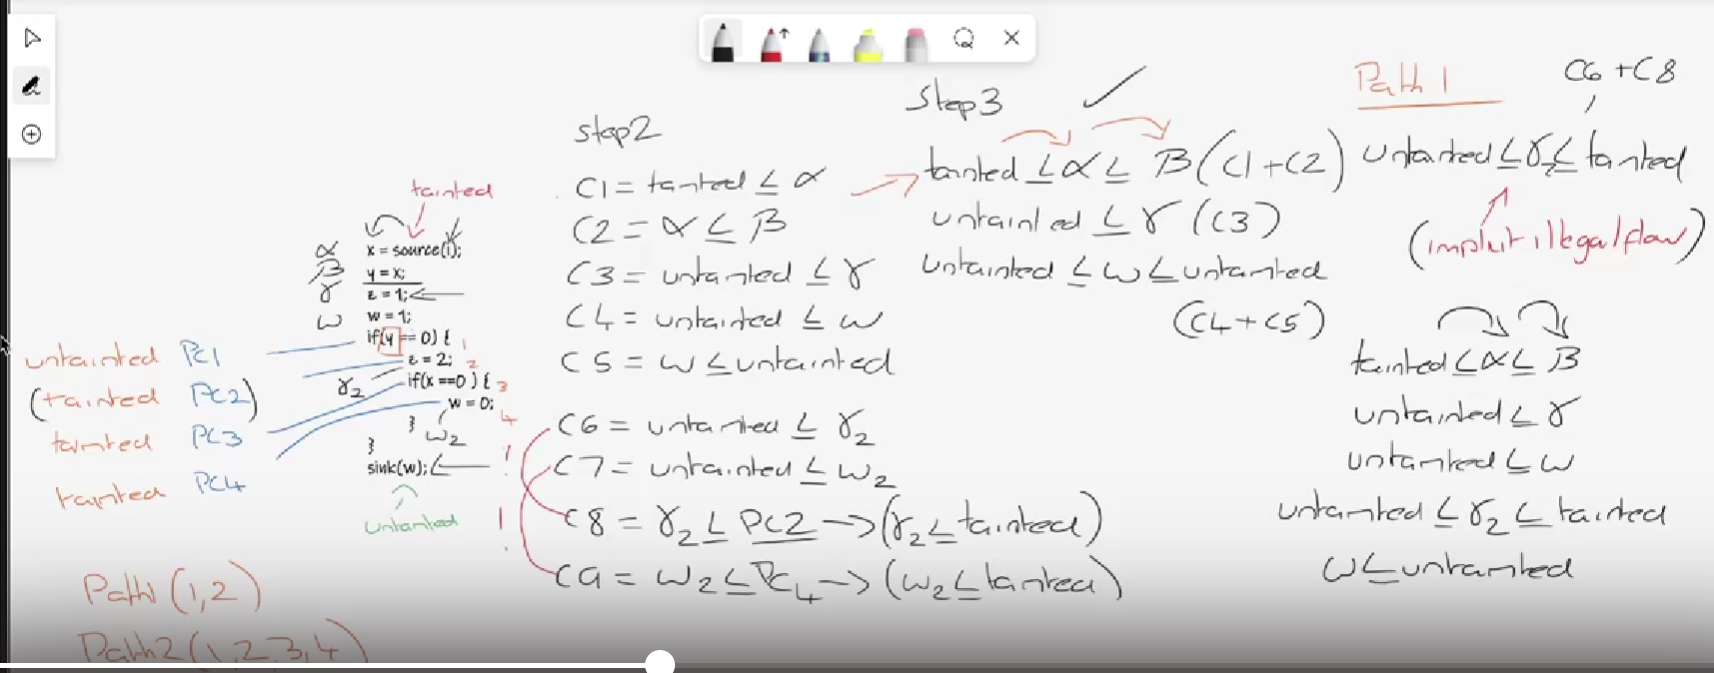 tainted
α x = source(1);
β y = x;
γ z = 1;
ω w = 1;
if(y == 0) { 1
z = 2; 2
γ2 if(x ==0 ) { 3
w = 0; 4
} ω2
}
sink(w);
untainted
untainted PC1
(tainted PC2)
tainted PC3
tainted PC4
Path1 (1,2)
Path2 (1,2,3,4)
step2
C1 = tainted ≤ α
C2 = α ≤ β
C3 = untainted ≤ γ
C4 = untainted ≤ ω
C5 = ω ≤ untainted
C6 = untainted ≤ γ2
! C7 = untainted ≤ ω2
! C8 = γ2 ≤ PC2 → (γ2 ≤ tainted)
C9 = ω2 ≤ PC4 → (ω2 ≤ tainted)
Step3 ✓
tainted ≤ α ≤ β (C1+C2)
untainted ≤ γ (C3)
untainted ≤ ω ≤ untainted
(C4+C5)
Path 1 C6 +C8
untainted ≤ γ2 ≤ tainted
(implicit illegal flow)
tainted ≤ α ≤ β
untainted ≤ γ
untainted ≤ ω
untainted ≤ γ2 ≤ tainted
ω ≤ untainted